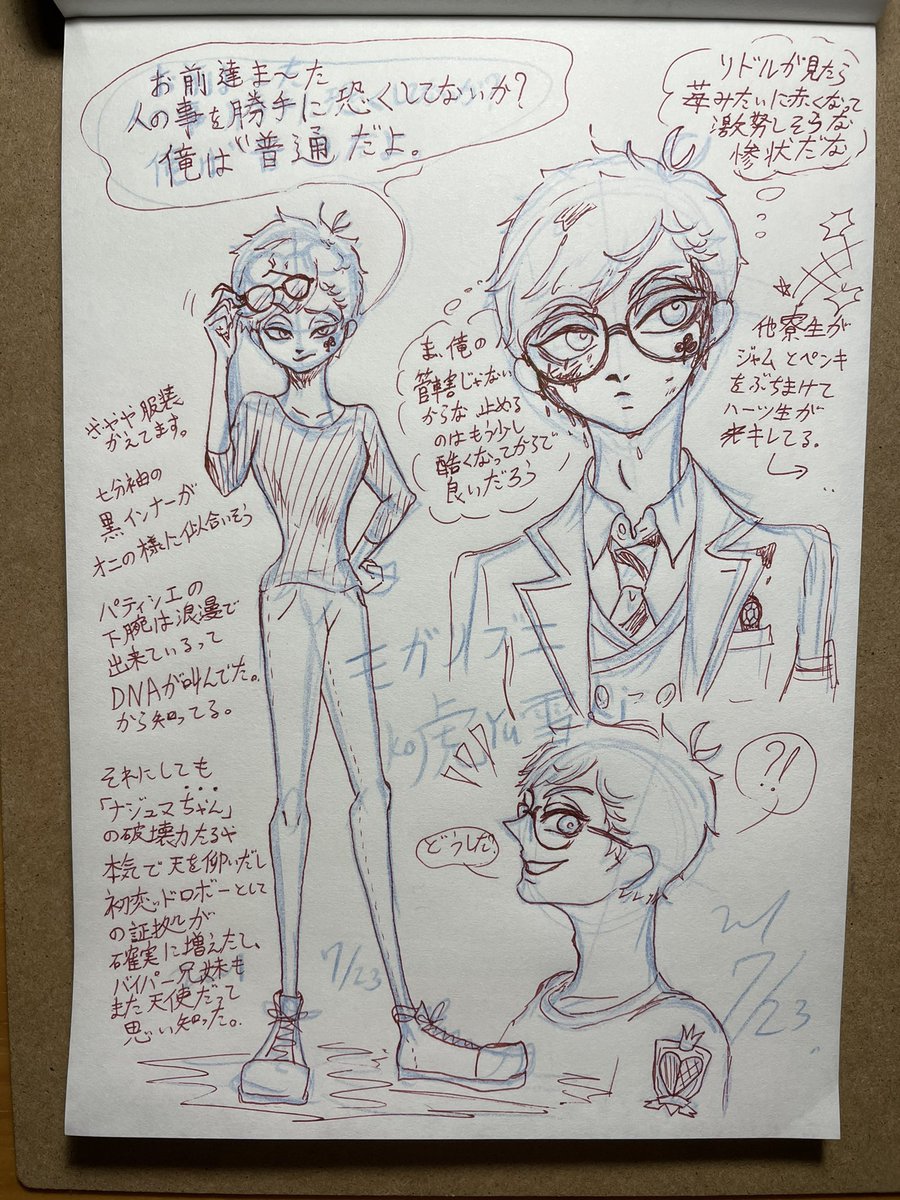 お前達ま〜た
人の事を勝手に恐くしてないか？
俺は"普通"だよ。
リドルが見たら
苺みたいに赤くなって
激怒しそうな
惨状だな
ま、俺の
管轄じゃない
からな 止める
のはもう少し
酷くなってからで
良いだろう
他寮生が
ジャムとペンキ
をぶちまけて
ハーツ生が
キレてる。
きやや服装
かえてます。
七分袖の
黒インナーが
オニの様に似合いそう
パティシエの
下腕は浪漫で
出来ているって
DNAが叫んでた。
から知ってる。
それにしても
「ナジュマちゃん」
の破壊力たるや
本気で天を仰いだし
初恋ドロボーとして
の証拠が
確実に増えたし、
バイパー兄妹も
また天使だって
思い知った。
どうした？
?!
7/23
7/23